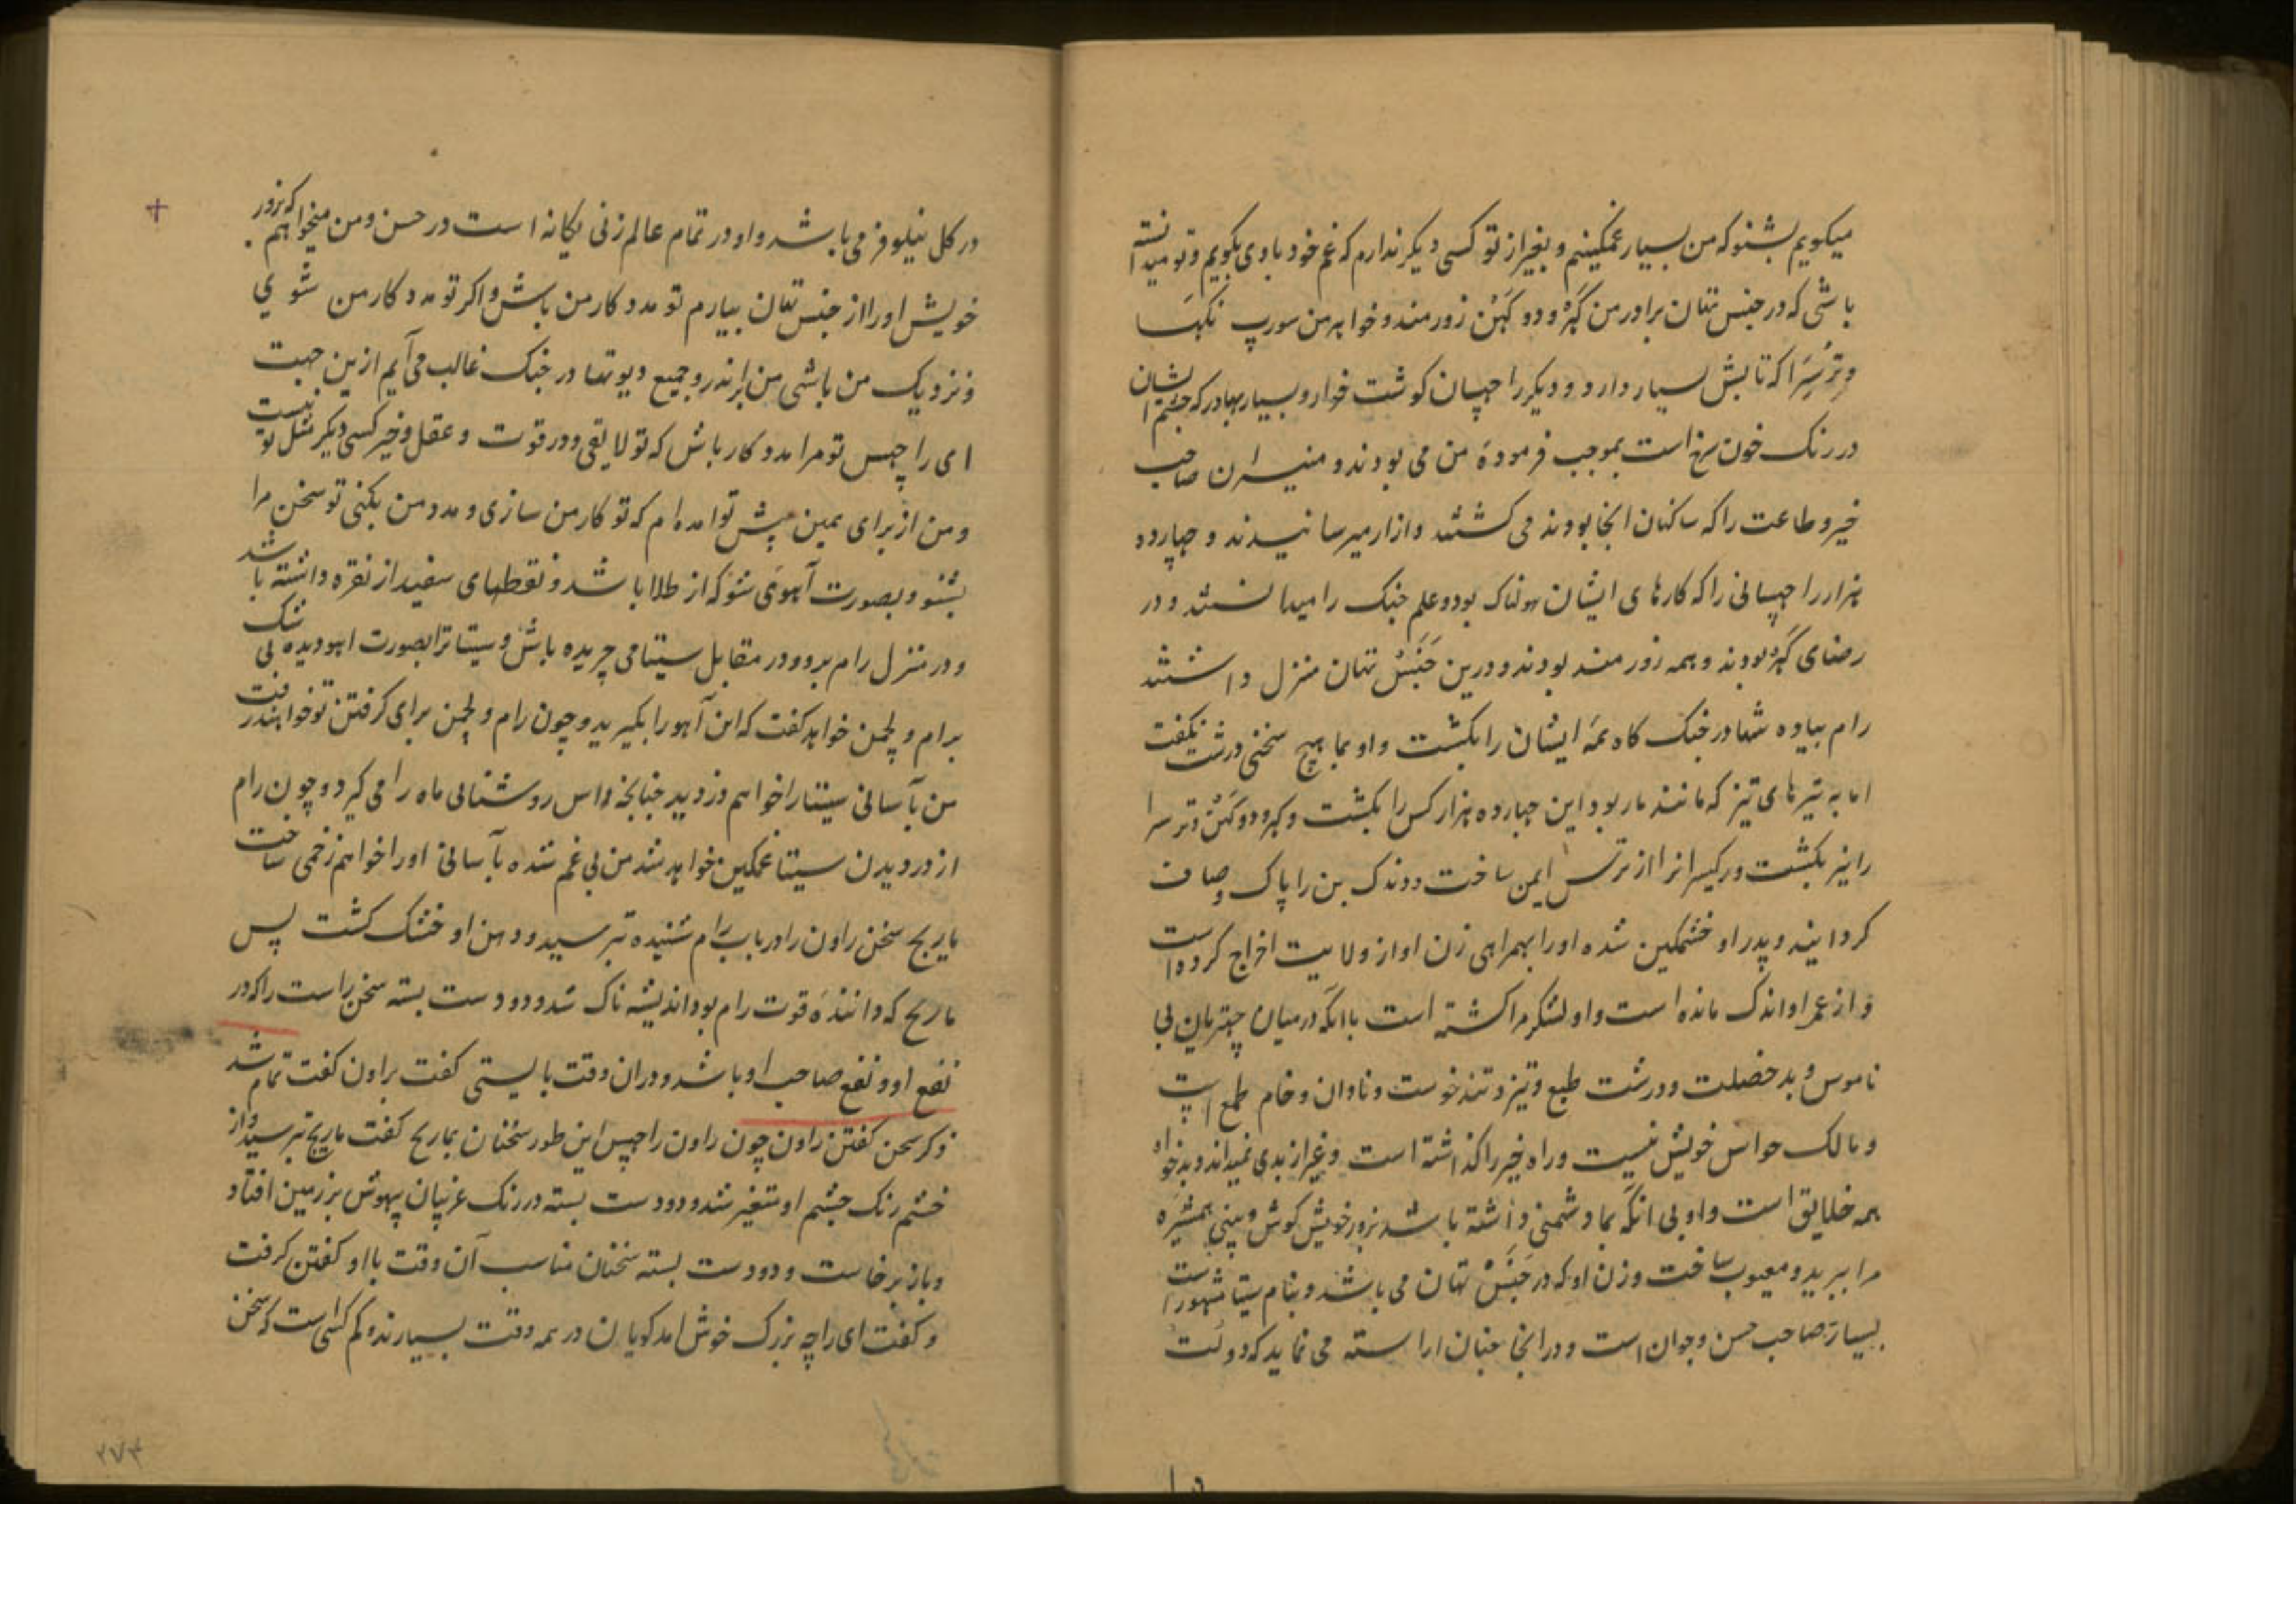 میکویم بشنو که من بسیار غمکینم و بغیر از تو کسی دیکر ندارم که غم خود باوی بکویم و تو میدانسته
باشی که در جنس تهان برادر من کهر و دو کهن زورمند و خواهر من سورپ نکها
و ترسرا که تابش بسیار دارد و دیکر راچهسان کوشت خوار و بسیار بهادر که چشم ایشان
در رنک خون سرخ است بموجب فرمودهٔ من می بودند و منیسران صاحب
خیر و طاعت را که ساکنان انجا بودند می کشتند و ازار میرسانیدند و چهارده
هزار راچهسانی را که کارهای ایشان هولناک بود و علم جنک را میدانستند و در
رضای کهر بودند و همه زورمند بودند و درین جنس تهان منزل داشتند
رام پیاده تنها در جنک کاه همه ایشان را بکشت و او بما هیچ سخنی درشت نکفت
اما به تیرهای تیز که مانند مار بود این چهارده هزار کس را بکشت و کهر و دوکهن و ترسرا
را نیز بکشت و رکیسرانرا از ترس ایمن ساخت و دندک بن را پاک و صاف
کردانید و پدر او خشمکین شده او را بهمراهی زن او از ولایت اخراج کرده است
و از عمر او اندک مانده است و او لشکر مرا کشته است باانکه درمیان چهتریان بی
ناموس و بدخصلت و درشت طبع و تیز و تندخوست و نادان و خام طمع است
و مالک حواس خویش نیست و راه خیر را کذاشته است و غیر از بدی نمیداند و بدخواه
همه خلایق است و او بی انکه بما دشمنی داشته باشد بزور خویش کوش و بینی همشیره
مرا ببرید و معیوب ساخت و زن او که در جنس تهان می باشد و بنام سیتا مشهور است
بسیار صاحب حسن و جوان است و در انجا چنان اراسته می نماید که دولت
در کل نیلوفر می باشد و او در تمام عالم زنی یکانه است در حسن و من میخواهم که بزور
خویش او را از جنس تهان بیارم تو مددکار من باش و اکر تو مددکار من شوی
و نزدیک من باشی من بر اندر و جمیع دیوتها در جنک غالب می آیم ازین جهت
ای راچهس تو مرا مددکار باش که تو لایقی و در قوت و عقل و خیر کسی دیکر مثل تو نیست
و من از برای همین پیش تو امده ام که تو کار من سازی و مدد من بکنی تو سخن مرا
بشنو و بصورت آهوی شو که از طلا باشد و نقطهای سفید از نقره داشته باشد
و در منزل رام برو و در مقابل سیتا می چریده باش و سیتا ترا بصورت اهو دیده بی شک
برام و لچمن خواهد کفت که این آهو را بکیرید و چون رام و لچمن برای کرفتن تو خواهند رفت
من بآسانی سیتا را خواهم دزدید چنانچه راس روشنایی ماه را می کیرد و چون رام
از دزدیدن سیتا غمکین خواهد شد من بی غم شده بآسانی او را خواهم زخمی ساخت
ماریچ سخن راون را در باب رام شنیده بترسید و دهن او خشک کشت پس
ماریچ که دانندهٔ قوت رام بود اندیشه ناک شد و دو دست بسته سخن راست را که در
نفع او و نفع صاحب او باشد و دران وقت بایستی کفت براون کفت تمام شد
ذکر سخن کفتن راون چون راون راچهس این طور سخنان بماریچ کفت ماریچ بترسید و از
خشم رنک چشم او متغیر شد و دو دست بسته در رنک غریبان بیهوش بر زمین افتاد
و باز برخاست و دو دست بسته سخنان مناسب آن وقت با او کفتن کرفت
و کفت ای راجه بزرک خوش امد کویان در همه وقت بسیارند و کم کسی است که سخن
۲۷۴